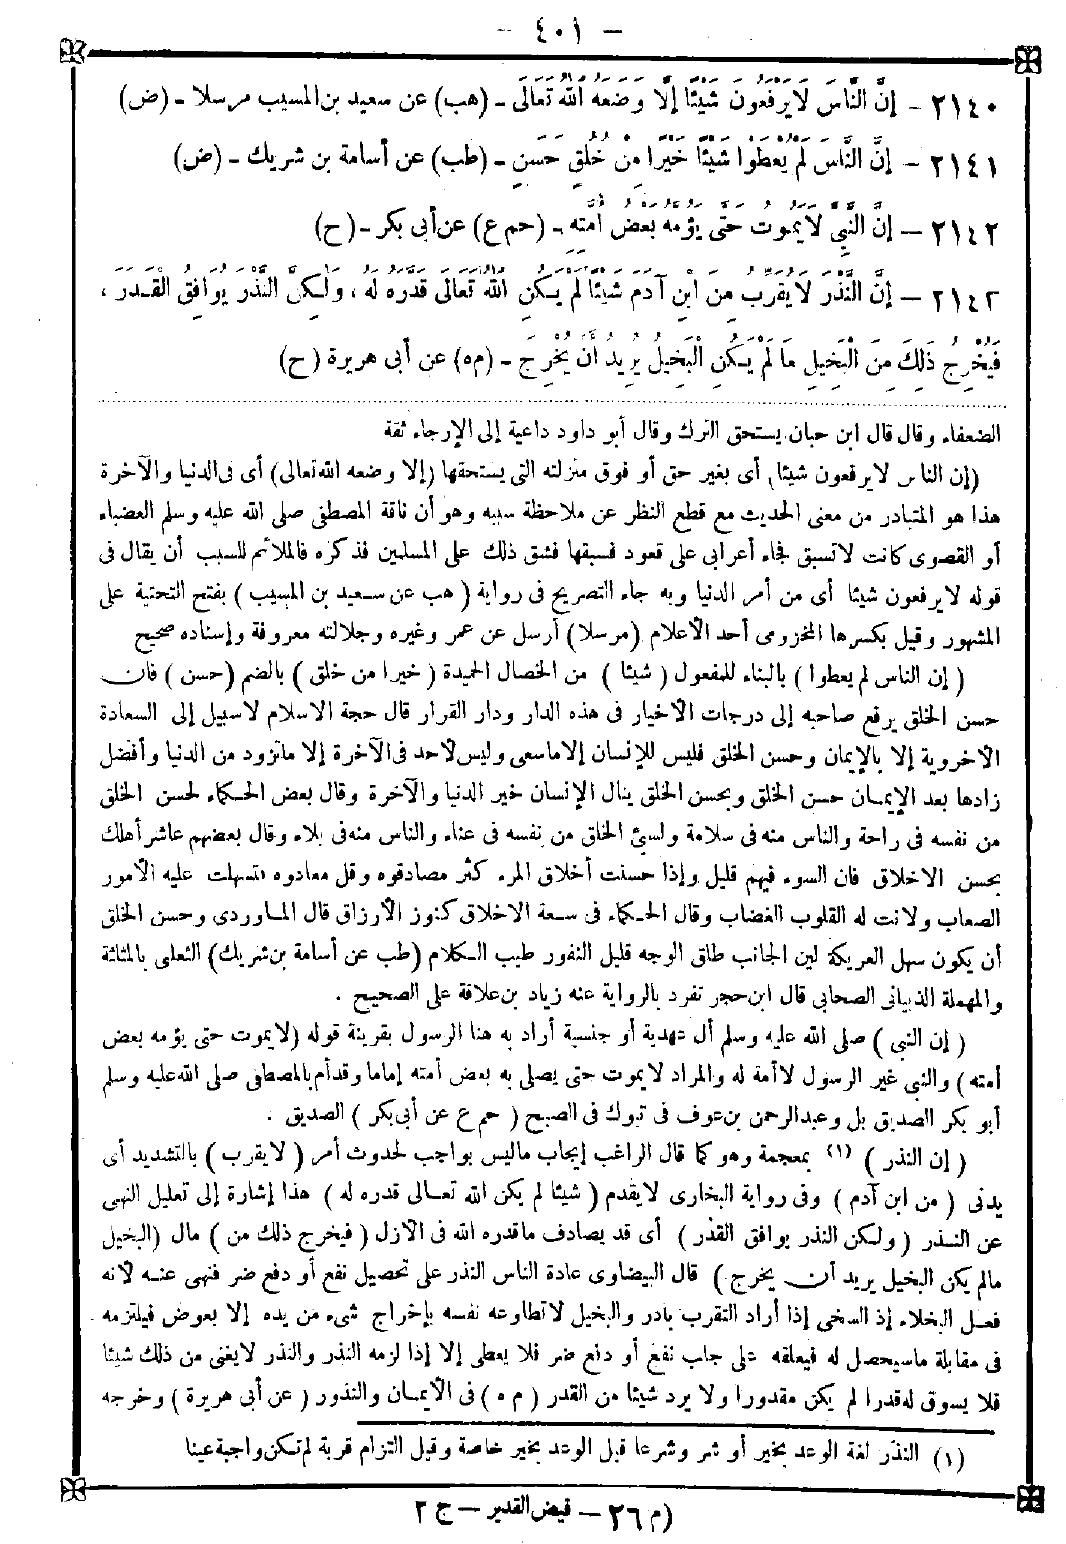 - ٤٠١ -
٢١٤٠ - إِنَّ النَّاسَ لَا يَرْفَعُونَ شَيْئًا إِلَّا وَضَعَهُ اللهُ تَعَالَى - (هب) عن سعيد بن المسيب مرسلا - (ض)
٢١٤١ - إِنَّ النَّاسَ لَمْ يُعْطَوْا شَيْئًا خَيْرًا مِنْ خُلُقٍ حَسَنٍ - (طب) عن أسامة بن شريك - (ض)
٢١٤٢ - إِنَّ النَّبِيَّ لَا يَمُوتُ حَتَّى يَؤُمَّهُ بَعْضُ أُمَّتِهِ - (حم ع) عن أبى بكر - (ح)
٢١٤٣ - إِنَّ النَّذْرَ لَا يُقَرِّبُ مِنِ ابْنِ آدَمَ شَيْئًا لَمْ يَكُنِ اللهُ تَعَالَى قَدَّرَهُ لَهُ ، وَلَكِنَّ النَّذْرَ يُوَافِقُ الْقَدَرَ ،
فَيُخْرِجُ ذَلِكَ مِنَ الْبَخِيلِ مَا لَمْ يَكُنِ الْبَخِيلُ يُرِيدُ أَنْ يُخْرِجَ - (م ه) عن أبى هريرة (ح)
الضعفاء وقال قال ابن حبان يستحق الترك وقال أبو داود داعية إلى الإرجاء ثقة
(إن الناس لا يرفعون شيئا) أى بغير حق أو فوق منزلته التى يستحقها (إلا وضعه الله تعالى) أى فى الدنيا والآخرة
هذا هو المتبادر من معنى الحديث مع قطع النظر عن ملاحظة سببه وهو أن ناقة المصطفى صلى الله عليه وسلم العضباء
أو القصوى كانت لا تسبق فجاء أعرابى على قعود فسبقها فشق ذلك على المسلمين فذكره فالملائم للسبب أن يقال فى
قوله لا يرفعون شيئا أى من أمر الدنيا وبه جاء التصريح فى رواية ( هب عن سعيد بن المسيب ) بفتح التحتية على
المشهور وقيل بكسرها المخزومى أحد الأعلام (مرسلا) أرسل عن عمر وغيره وجلالته معروفة وإسناده صحيح
( إن الناس لم يعطوا ) بالبناء للمفعول ( شيئا ) من الخصال الحميدة ( خيرا من خلق ) بالضم (حسن ) فان
حسن الخلق يرفع صاحبه إلى درجات الأخيار فى هذه الدار ودار القرار قال حجة الاسلام لا سبيل إلى السعادة
الأخروية إلا بالإيمان وحسن الخلق فليس للإنسان إلا ما سعى وليس لأحد فى الآخرة إلا ما تزود من الدنيا وأفضل
زادها بعد الإيمان حسن الخلق وبحسن الخلق ينال الإنسان خير الدنيا والآخرة وقال بعض الحكماء لحسن الخلق
من نفسه فى راحة والناس منه فى سلامة ولسيئ الخلق من نفسه فى عناء والناس منه فى بلاء وقال بعضهم عاشر أهلك
بحسن الاخلاق فان السوء فيهم قليل وإذا حسنت أخلاق المرء كثر مصادقوه وقل معادوه فتسهلت عليه الأمور
الصعاب ولانت له القلوب الغضاب وقال الحكماء فى سعة الاخلاق كنوز الأرزاق قال الماوردى وحسن الخلق
أن يكون سهل العريكة لين الجانب طلق الوجه قليل النفور طيب الكلام (طب عن أسامة بن شريك) الثعلبى بالمثلثة
والمهملة الذبيانى الصحابى قال ابن حجر تفرد بالرواية عنه زياد بن علاقة على الصحيح .
( إن النبى ) صلى الله عليه وسلم أل عهدية أو جنسية أراد به هنا الرسول بقرينة قوله (لا يموت حتى يؤمه بعض
أمته) والنبى غير الرسول لا أمة له والمراد لا يموت حتى يصلى به بعض أمته إماما وقد أم بالمصطفى صلى الله عليه وسلم
أبو بكر الصديق بل وعبد الرحمن بن عوف فى تبوك فى الصبح ( حم ع عن أبى بكر ) الصديق .
( إن النذر ) (١) بمعجمة وهو كما قال الراغب إيجاب ما ليس بواجب لحدوث أمر ( لا يقرب ) بالتشديد أى
يدنى ( من ابن آدم ) وفى رواية البخارى لا يقدم ( شيئا لم يكن الله تعالى قدره له ) هذا إشارة إلى تعليل النهى
عن النذر ( ولكن النذر يوافق القدر ) أى قد يصادف ما قدره الله فى الأزل ( فيخرج ذلك من ) مال (البخيل
مالم يكن البخيل يريد أن يخرج ) قال البيضاوى عادة الناس النذر على تحصيل نفع أو دفع ضر فنهى عنه لأنه
فعل البخلاء إذ السخى إذا أراد التقرب بادر والبخيل لا تطاوعه نفسه بإخراج شىء من يده إلا بعوض فيلتزمه
فى مقابلة ما سيحصل له فيعلقه على جلب نفع أو دفع ضر فلا يعطى إلا إذا لزمه النذر والنذر لا يغنى من ذلك شيئا
فلا يسوق له قدرا لم يكن مقدورا ولا يرد شيئا من القدر ( م ه ) فى الأيمان والنذور ( عن أبى هريرة ) وخرجه
(١) النذر لغة الوعد بخير أو شر وشرعا قيل الوعد بخير خاصة وقيل التزام قربة لم تكن واجبة عينا
(م ٢٦ - فيض القدير - ج ٢